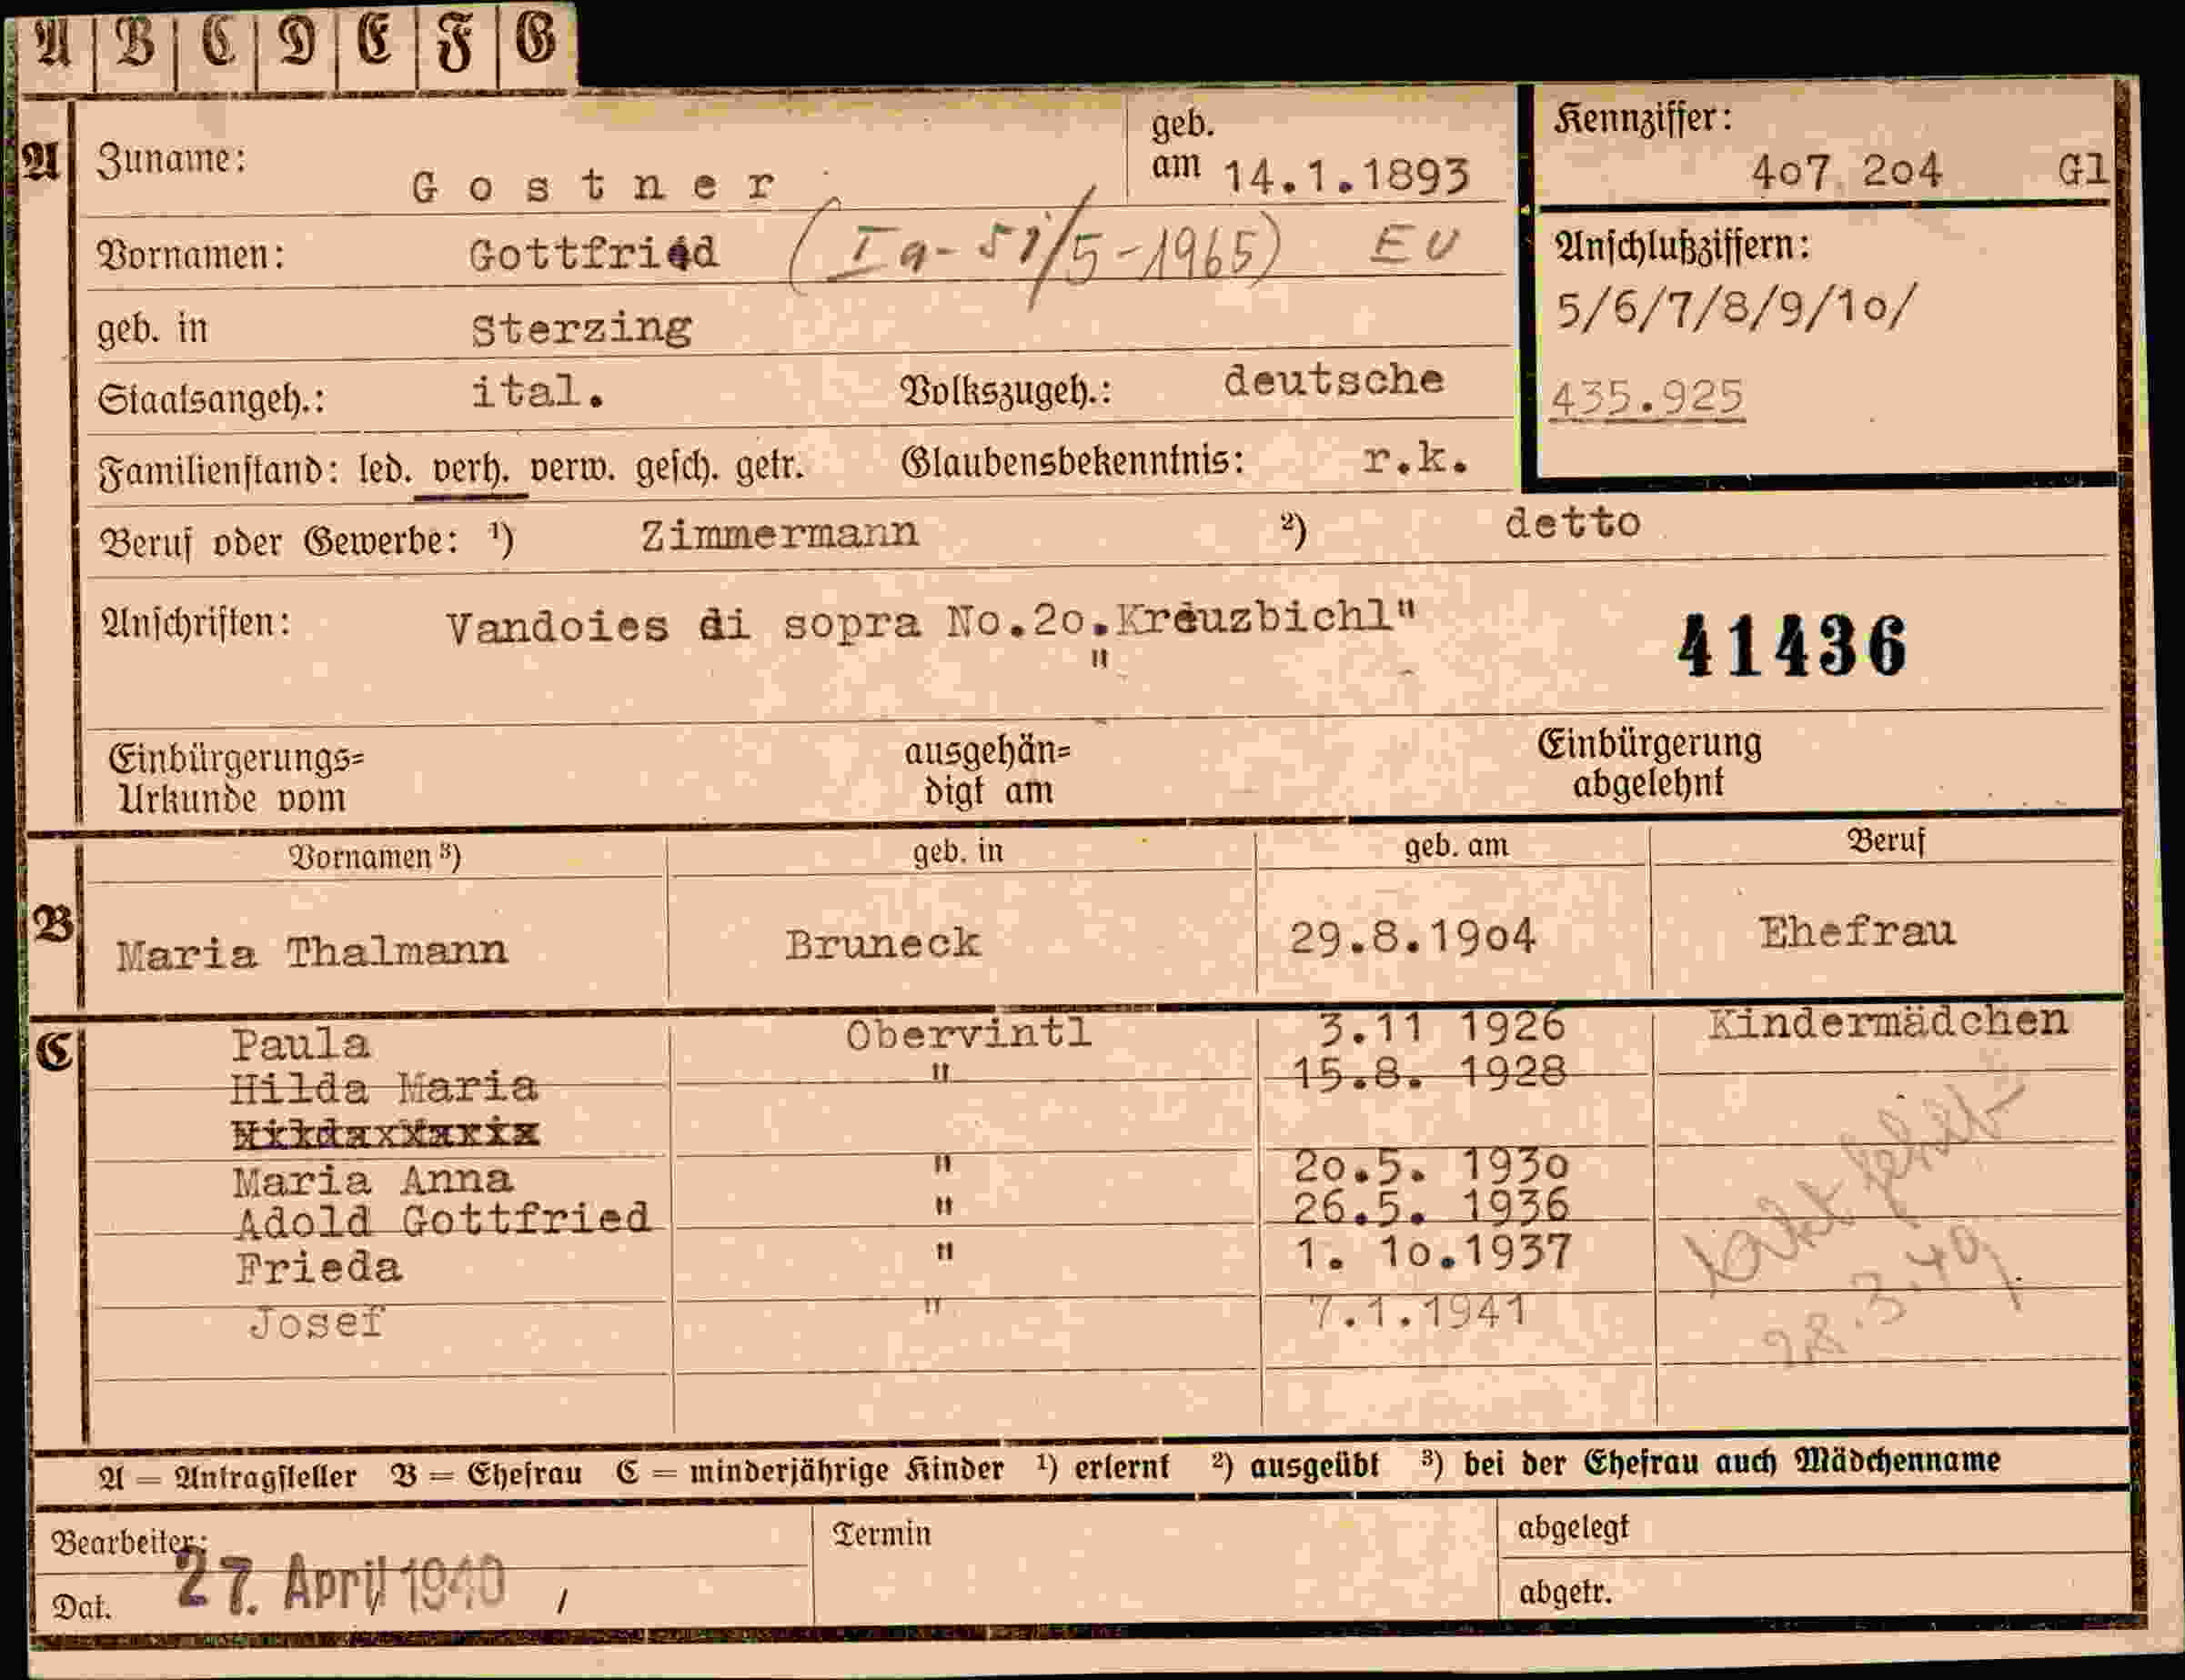 A B C D E F G
A Zuname: Gostner geb. am 14.1.1893
Kennziffer: 4o7 2o4 Gl
Vornamen: Gottfried (Ia-51/5-1965) EU
Anschlußziffern:
5/6/7/8/9/1o/
geb. in Sterzing
Staatsangeh.: ital. Volkszugeh.: deutsche
435.925
Familienstand: led. verh. verw. gesch. getr. Glaubensbekenntnis: r.k.
Beruf oder Gewerbe: ¹) Zimmermann ²) detto
Anschriften: Vandoies di sopra No.2o."Kreuzbichl"
41436
Einbürgerungs=
Urkunde vom
ausgehän=
digt am
Einbürgerung
abgelehnt
Vornamen ³) geb. in geb. am Beruf
B Maria Thalmann Bruneck 29.8.19o4 Ehefrau
C Paula Obervintl 3.11 1926 Kindermädchen
Hilda Maria " 15.8. 1928
Maria Anna " 2o.5. 193o
Adold Gottfried " 26.5. 1936
Frieda " 1. 1o.1937
Josef " 7.1.1941
Akt fehlt
28.3.49
A = Antragsteller B = Ehefrau C = minderjährige Kinder ¹) erlernt ²) ausgeübt ³) bei der Ehefrau auch Mädchenname
Bearbeiter:
Dat. 27. April 1940 /
Termin
abgelegt
abgetr.